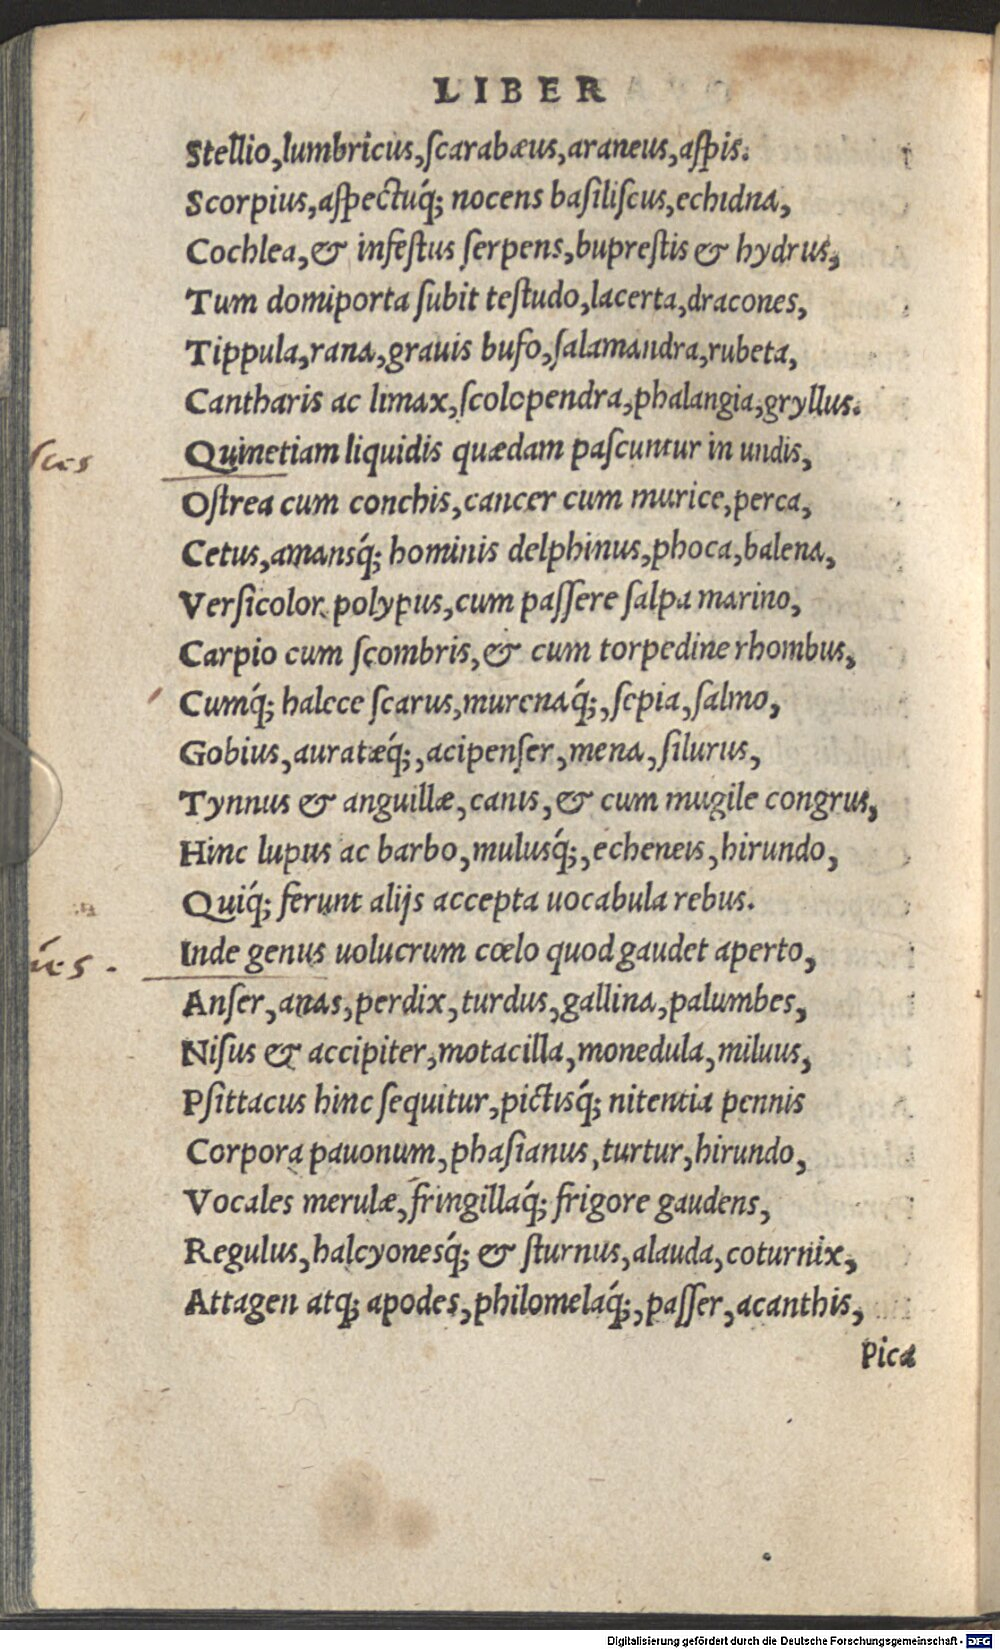 LIBER
Stellio,lumbricus,ſcarabæus,araneus,aſpis.
Scorpius,aſpectuq́; nocens baſiliſcus,echidna,
Cochlea,& infeſtus ſerpens,bupreſtis & hydrus,
Tum domiporta ſubit teſtudo,lacerta,dracones,
Tippula,rana,grauis bufo,ſalamandra,rubeta,
Cantharis ac limax,ſcolopendra,phalangia,gryllus.
Quinetiam liquidis quædam paſcuntur in undis,
Oſtrea cum conchis,cancer cum murice,perca,
Cetus,amansq́; hominis delphinus,phoca,balena,
Verſicolor polypus,cum paſſere ſalpa marino,
Carpio cum ſcombris,& cum torpedine rhombus,
Cumq́; halece ſcarus,murenaq́;,ſepia,ſalmo,
Gobius,auratæq́;,acipenſer,mena,ſilurus,
Tynnus & anguillæ,canis,& cum mugile congrus,
Hinc lupus ac barbo,mulusq́;,echeneis,hirundo,
Quiq́; ferunt alijs accepta uocabula rebus.
Inde genus uolucrum cœlo quod gaudet aperto,
Anſer,anas,perdix,turdus,gallina,palumbes,
Niſus & accipiter,motacilla,monedula,miluus,
Pſittacus hinc ſequitur,pictisq́; nitentia pennis
Corpora pauonum,phaſianus,turtur,hirundo,
Vocales merulæ,fringillaq́; frigore gaudens,
Regulus,halcyonesq́; & ſturnus,alauda,coturnix,
Attagen atq; apodes,philomelaq́;,paſſer,acanthis,
Pica
Digitalisierung gefördert durch die Deutsche Forschungsgemeinschaft - DFG